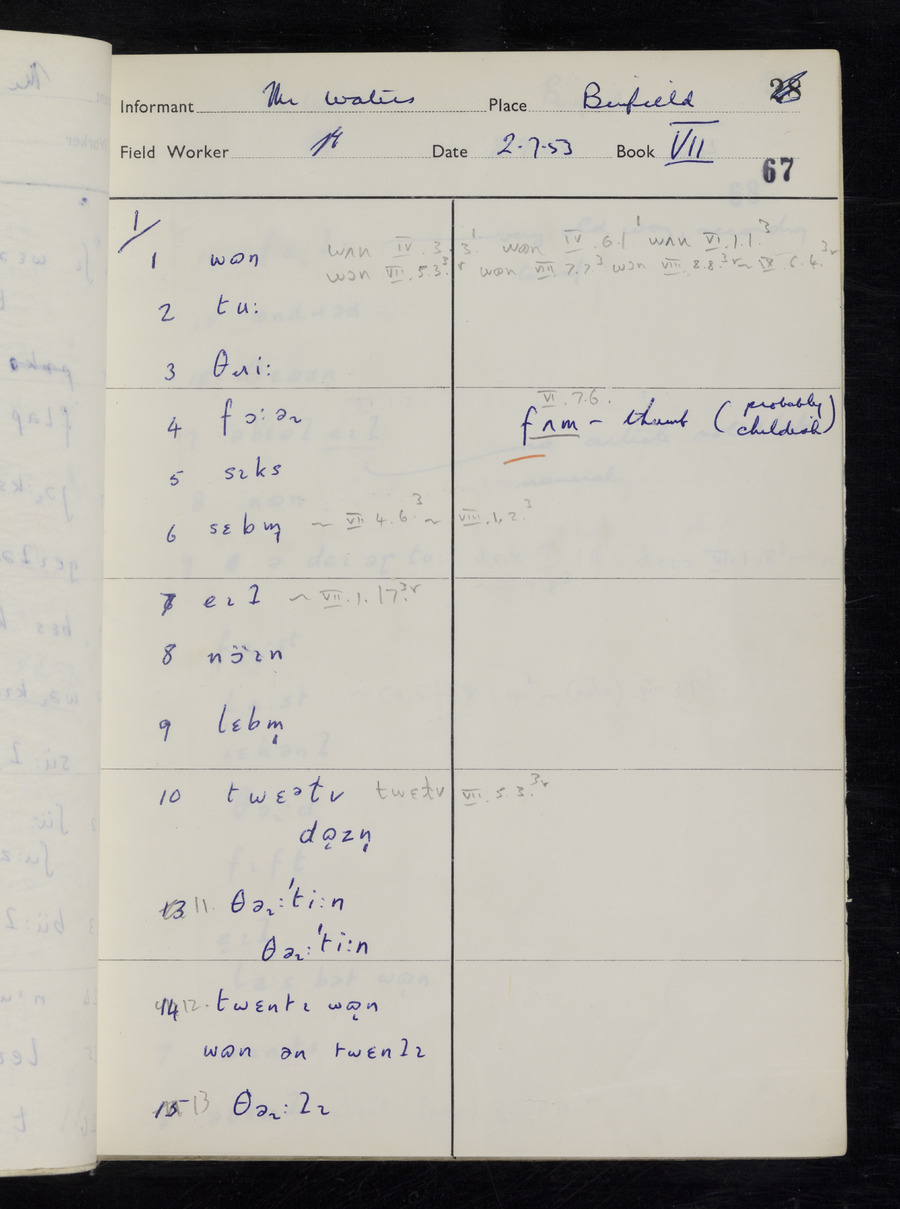 Informant Mr Waters Place Binfield 28
Field Worker Date 2.7.53 Book VII
67
1/
1 wɒn wʌn IV.3.3.¹ wɒn IV.6.1¹ wʌn VI.1.1.³
wɒn VII.5.3.³ʳ wɒn VII.7.7³ wɒn VIII.8.8.³ʳ ~ IX.6.4.³ʳ
2 tu:
3 θɹi:
4 fɔ:əɹ VI.7.6.
fʌm – thumb (probably childish)
5 sɪks
6 sɛbm̩ ~ VII.4.6.³ ~ VIII.1.2.³
7 eɪl ~ VII.1.17.³ʳ
8 nɔ̈ɪn
9 lɛbm̩
10 twɛətv twɛtv VII.5.3.³ʳ
dɒ̜zn̩
13 11. θəɹ:ˈti:n
θəɹ:ˈti:n
14 12. twɛntɪ wɒ̜n
wɒn ən twɛnʔɪ
15 13 θəɹ:ʔɪ